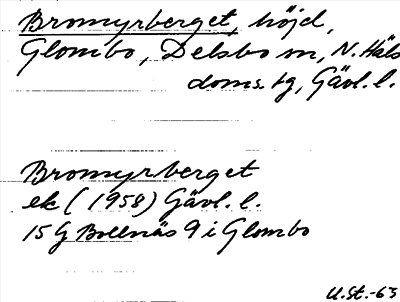 Bromyrberget, höjd,
Glombo, Delsbo sn, N. Häls
doms. tg, Gävl. l.
Bromyrberget
ek (1958) Gävl. l.
15 G Bollnäs 9 i Glombo
U. St. -63